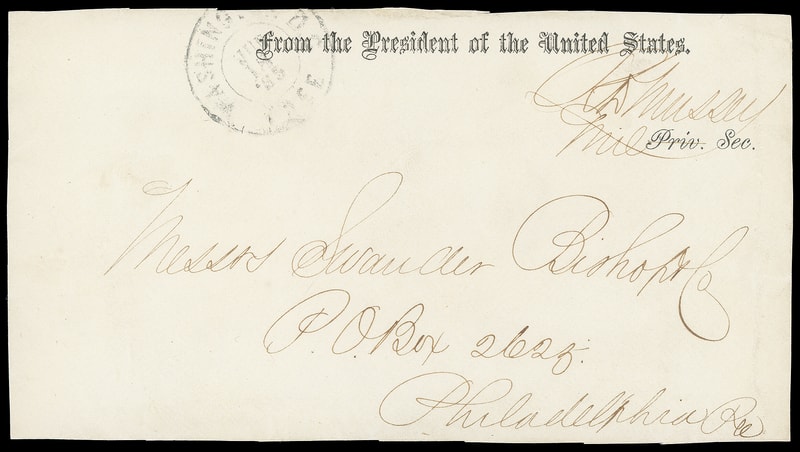 WASHINGTON D.C. FREE
From the President of the United States.
R D Mussey
Mil Priv. Sec.
Messrs Swander Bishop & Co
P. O. Box 2625.
Philadelphia Pa